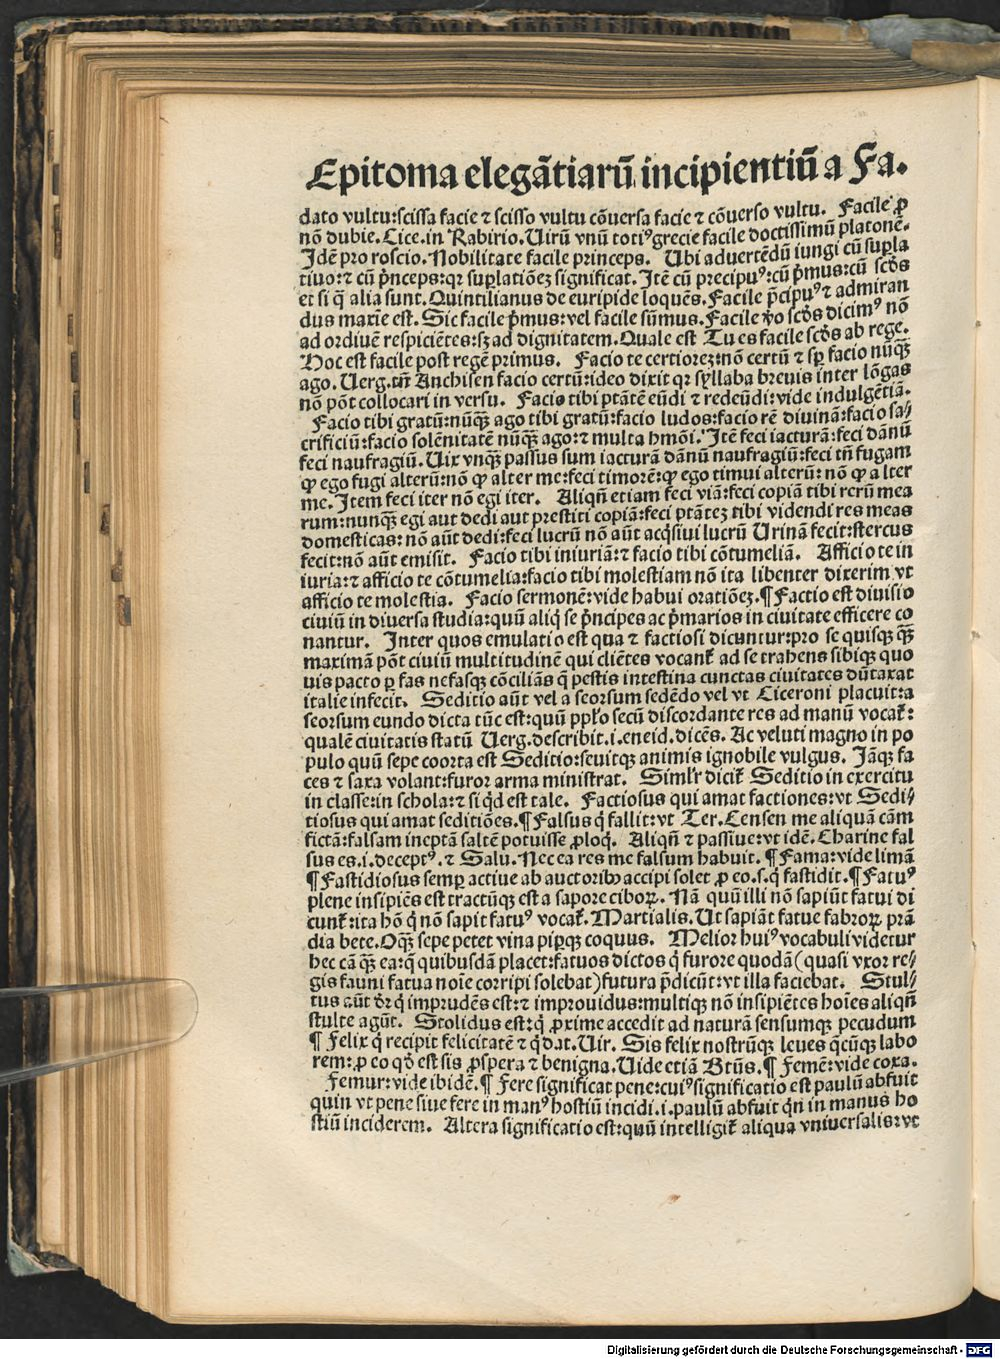 Epitoma elegãtiarũ incipientiũ a Fa.
dato vultu:scissa facie ⁊ scisso vultu cõuersa facie ⁊ cõuerso vultu. Facile ꝓ
nõ dubie. Cice. in Rabirio. Uirũ vnũ totiꝰ grecie facile doctissimũ platonẽ.
Idẽ pro roscio. Nobilitate facile princeps. Ubi aduertẽdũ iungi cũ suꝑla
tiuo:⁊ cũ p̃nceps:qꝛ suꝑlatiõeꝫ significat. Itẽ cũ precipuꝰ:cũ p̃mus:cũ scd̃s
et si q̃ alia sunt. Quintilianus de euripide loquẽs. Facile p̃cipuꝰ ⁊ admiran
dus maxĩe est. Sic facile p̃mus:vel facile sũmus. Facile ꝟo scd̃s dicimꝰ nõ
ad ordinẽ respiciẽtes:sꝫ ad dignitatem. Quale est Tu es facile scd̃s ab rege.
Hoc est facile post regẽ primus. Facio te certioreꝫ:nõ certũ ⁊ sꝑ facio nũqꝫ̃
ago. Uerg. tñ Anchisen facio certũ:ideo dixit qꝛ syllaba breuis inter lõgas
nõ põt collocari in versu. Facio tibi ptãtẽ eũdi ⁊ redeũdi:vide indulgẽtiã.
Facio tibi gratũ:nũqꝫ̃ ago tibi gratũ:facio ludos:facio rẽ diuinã:facio sa⸗
crificiũ:facio solẽnitatẽ nũqꝫ̃ ago:⁊ multa hmõi. Itẽ feci iacturã:feci dãnũ
feci naufragiũ. Uix vnqꝫ̃ passus sum iacturã dãnũ naufragiũ:feci tñ fugam
ꝙ ego fugi alterũ:nõ ꝙ alter me:feci timorẽ:ꝙ ego timui alterũ: nõ ꝙ alter
me. Item feci iter nõ egi iter. Aliqñ etiam feci viã:feci copiã tibi rerũ mea
rum:nunqꝫ̃ egi aut dedi aut prestiti copiã:feci ptãteꝫ tibi videndi res meas
domesticas: nõ aũt dedi:feci lucrũ nõ aũt acq̃siui lucrũ Urinã fecit:stercus
fecit:nõ aũt emisit. Facio tibi iniuriã:⁊ facio tibi cõtumeliã. Afficio te in
iuria:⁊ afficio te cõtumelia:facio tibi molestiam nõ ita libenter dixerim vt
afficio te molestia. Facio sermonẽ:vide habui oratiõeꝫ. ¶ Factio est diuisio
ciuiũ in diuersa studia:quũ aliq̃ se p̃ncipes ac p̃marios in ciuitate efficere co
nantur. Inter quos emulatio est qua ⁊ factiosi dicuntur:pro se quisqꝫ qꝫ̃
maximã põt ciuiũ multitudinẽ qui cliẽtes vocanť ad se trahens sibiqꝫ quo
uis pacto ꝑ fas nefasqꝫ cõciliãs q̃ pestis intestina cunctas ciuitates dũtaxat
italie infecit. Seditio aũt vel a seorsum sedẽdo vel vt Ciceroni placuit:a
seorsum eundo dicta tũc est:quũ ppło secũ discordante res ad manũ vocať:
qualẽ ciuitatis statũ Uerg. describit. i. eneid. dicẽs. Ac veluti magno in po
pulo quũ sepe coorta est Seditio:seuitqꝫ animis ignobile vulgus. Iãqꝫ fa
ces ⁊ saxa volant:furor arma ministrat. Simłr diciť Seditio in exercitu
in classe:in schola:⁊ si qd̃ est tale. Factiosus qui amat factiones:vt Sedi⸗
tiosus qui amat seditiões. ¶ Falsus q̃ fallit:vt Ter. Censen me aliquã cãm
fictã:falsam ineptã saltẽ potuisse ꝓloq̃. Aliqñ ⁊ passiue:vt idẽ. Charine fal
sus es. i. deceptꝰ. ⁊ Salu. Nec ea res me falsum habuit. ¶ Fama:vide limã
¶ Fastidiosus semꝑ actiue ab auctoribꝰ accipi solet ꝓ eo. s. q̃ fastidit. ¶ Fatuꝰ
plene insipiẽs est tractũqꝫ est a sapore ciboꝝ. Nã quũ illi nõ sapiũt fatui di
cunť:ita hõ q̃ nõ sapit fatuꝰ vocať. Martialis. Ut sapiãt fatue fabroꝝ prã
dia bete. Oqꝫ̃ sepe petet vina piꝑqꝫ coquus. Melior huiꝰ vocabuli videtur
hec cã qꝫ̃ ea:q̃ quibusdã placet:fatuos dictos q̃ furore quodã (quasi vxor re⸗
gis fauni fatua noĩe corripi solebat) futura p̃dicũt:vt illa faciebat. Stul⸗
tus aũt dr̃ q̃ imprudẽs est:⁊ improuidus:multiqꝫ nõ insipiẽtes hoĩes aliqñ
stulte agũt. Stolidus est:q̃ ꝓxime accedit ad naturã sensumqꝫ pecudum
¶ Felix q̃ recipit felicitatẽ ⁊ q̃ dat. Uir. Sis felix nostrũqꝫ leues q̃cũqꝫ labo
rem:ꝓ eo qd̃ est sis ꝓspera ⁊ benigna. Uide etiã Btũs. ¶ Femẽ:vide coxa.
Femur:vide ibidẽ. ¶ Fere significat pene:cuiꝰ significatio est paulũ abfuit
quin vt pene siue fere in manꝰ hostiũ incidi. i. paulũ abfuit q̃n in manus ho
stiũ inciderem. Altera significatio est:quũ intelligiť aliqua vniuersalis:vt
Digitalisierung gefördert durch die Deutsche Forschungsgemeinschaft - DFG